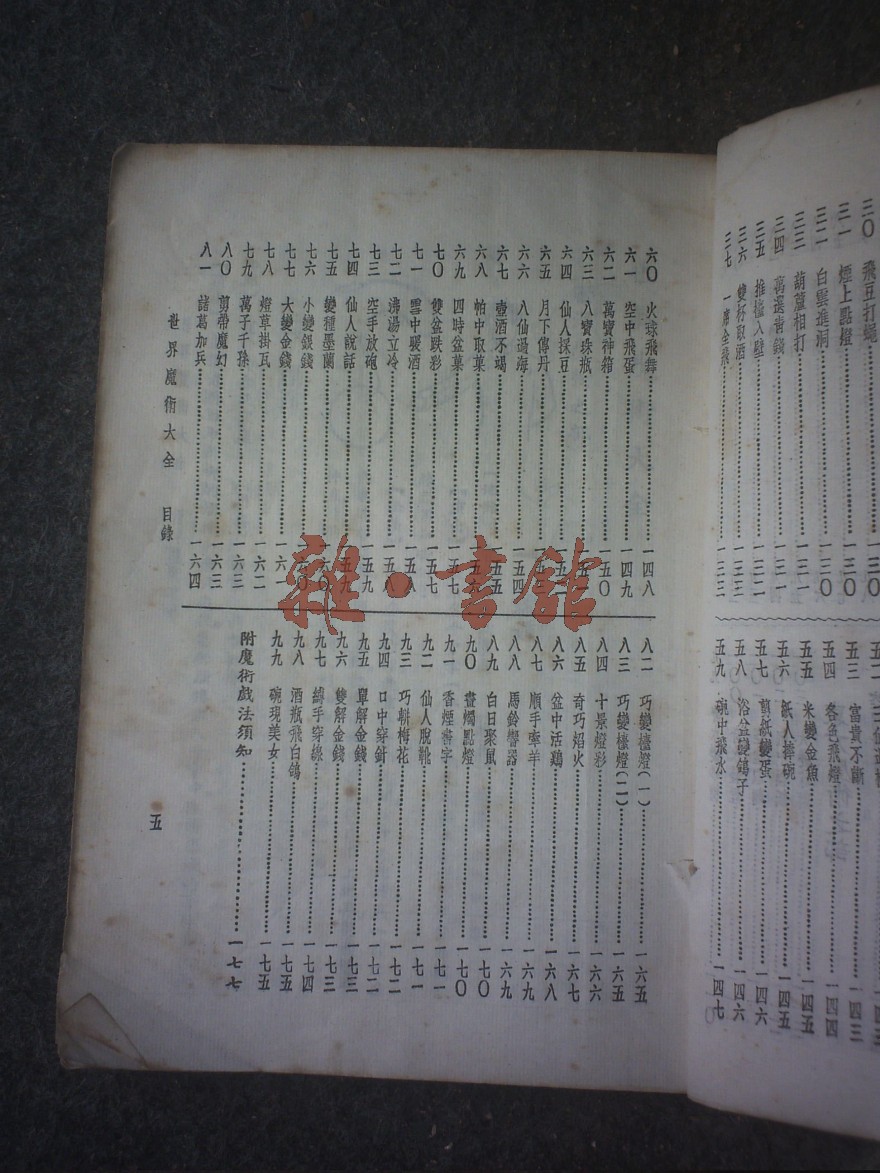 三〇 飛豆打蠅
三一 煙上點燈……一三〇
三二 白雲進洞……一三〇
三三 葫蘆相打……一三一
三四 萬選青錢……一三一
三五 推磕入壁……一三二
三六 雙杯取酒……一三三
三七 一席全飛……一三三
五三 富貴不斷……一四三
五四 各色飛燈……一四四
五五 米變金魚……一四五
五六 紙人摔碗……一四五
五七 剪紙變蛋……一四六
五八 浴盆變鴿子……一四六
五九 碗中飛水……一四七
六〇 火球飛舞……一四八
六一 空中飛蛋……一四九
六二 萬寶神箱……一五〇
六三 八寶珠瓶
六四 仙人採豆
六五 月下傳丹
六六 八仙過海……一五四
六七 壺酒不竭……一五五
六八 帕中取菓
六九 四時盆菓……一五七
七〇 雙盆跌彩……一五七
七一 雪中暖酒……一五八
七二 沸湯立冷……一五八
七三 空手放砲……一五九
七四 仙人說話……一五九
七五 變種墨蘭……一六〇
七六 小變銀錢……一六〇
七七 大變金錢……一六一
七八 燈草掛瓦……一六二
七九 萬子千孫……一六三
八〇 剪帶魔幻……一六三
八一 諸葛加兵……一六四
八二 巧變檯燈(一)……一六五
八三 巧變檯燈(二)……一六五
八四 十景燈彩……一六六
八五 奇巧焰火……一六七
八六 盆中活鷄……一六八
八七 順手牽羊……一六九
八八 馬鈴響器……一六九
八九 白日聚鼠……一七〇
九〇 畫燭點燈……一七〇
九一 香煙書字……一七一
九二 仙人脫靴……一七一
九三 巧斠梅花……一七二
九四 口中穿針……一七二
九五 單解金錢……一七三
九六 雙解金錢……一七三
九七 縛手穿線……一七四
九八 酒瓶飛白鴿……一七五
九九 碗現美女……一七五
附魔術戲法須知……一七七
世界魔術大全 目錄
五
雜·書館